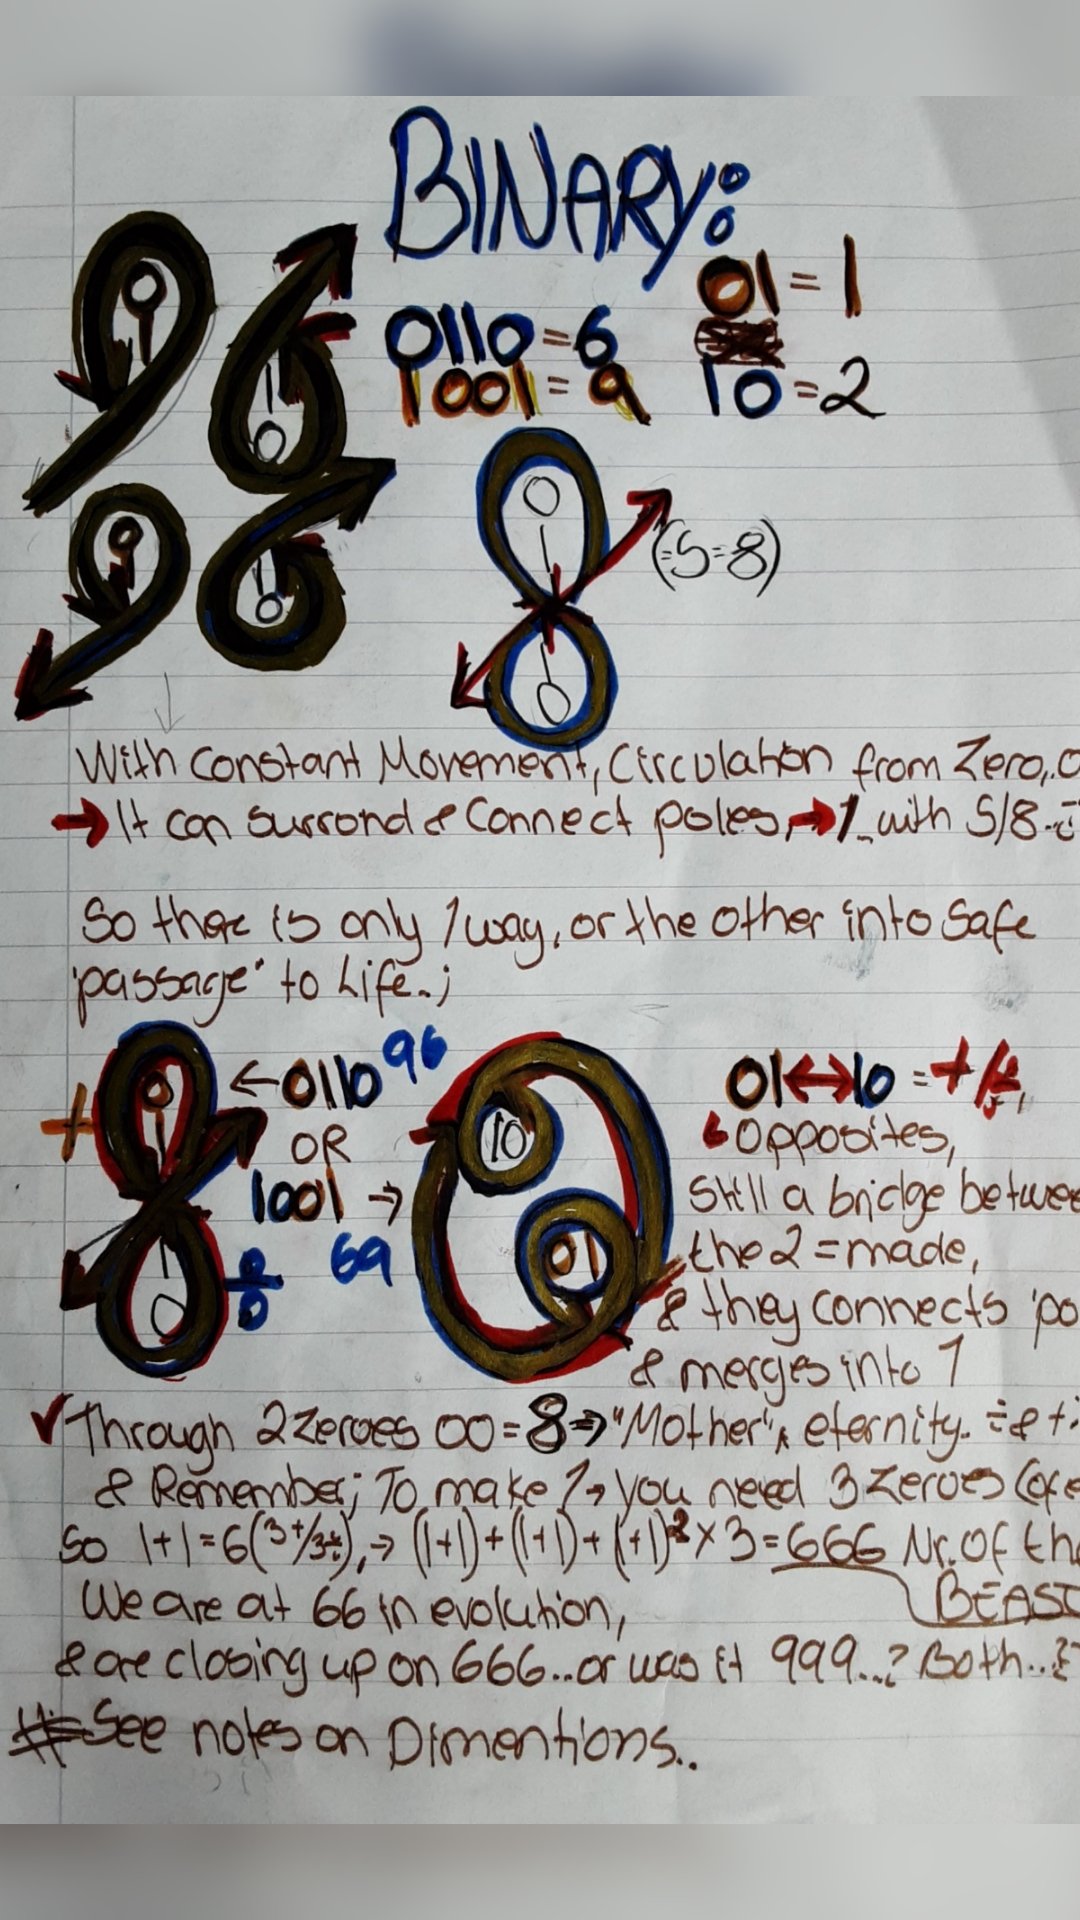 BINARY:
01 = 1
0110 = 6
1001 = 9
10 = 2
(=S=8)
With Constant Movement, Circulation from Zero,.0
→ It can surrond & Connect poles, → 1 with S/8
So there is only 1 way, or the other into Safe
'passage' to Life..;
+ ← 0110 96
OR
1001 →
69
10
01
01 ↔ 10 = +/÷
Opposites,
Still a bridge betwee
the 2 = made,
& they connects 'po
& merges into 1
✓ Through 2 Zeroes 00 = 8 → "Mother", eternity. ÷ & +
& Remember; To make 1 → you need 3 Zeroes
So 1+1=6(3+/3÷), → (1+1)+(1+1)+(1+1)² × 3 = 666 Nr. Of the
BEAST
We are at 66 in evolution,
& are closing up on 666.. or was it 999...? Both...
# See notes on Dimentions..